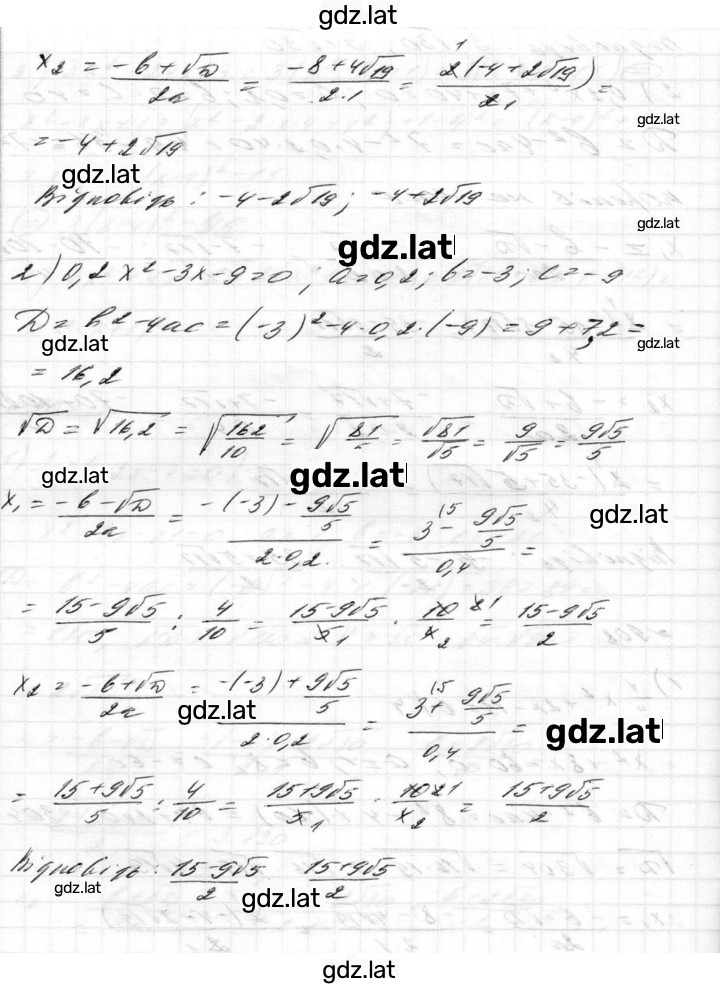 gdz.lat
x₂ = (-b+√D)/2a = (-8+4√19)/(2·1) = 2(-4+2√19)/2 1 =
= -4+2√19
gdz.lat
gdz.lat
Відповідь: -4-2√19; -4+2√19
gdz.lat
gdz.lat
2) 0,2x²-3x-9=0; a=0,2; b=-3; c=-9
D = b²-4ac = (-3)²-4·0,2·(-9) = 9+7,2 =
gdz.lat
gdz.lat
= 16,2
√D = √16,2 = √(162/10) = √(81/5) = √81/√5 = 9/√5 = 9√5/5
gdz.lat
gdz.lat
x₁ = (-b-√D)/2a = (-(-3)-9√5/5)/(2·0,2) = (3-9√5/5)/0,4 =
gdz.lat
= (15-9√5)/5 : 4/10 = (15-9√5)/5 · 10/4 = (15-9√5)/2
x₂ = (-b+√D)/2a = (-(-3)+9√5/5)/(2·0,2) = (3+9√5/5)/0,4 =
gdz.lat
gdz.lat
= (15+9√5)/5 : 4/10 = (15+9√5)/5 · 10/4 = (15+9√5)/2
Відповідь: (15-9√5)/2 (15+9√5)/2
gdz.lat
gdz.lat
gdz.lat